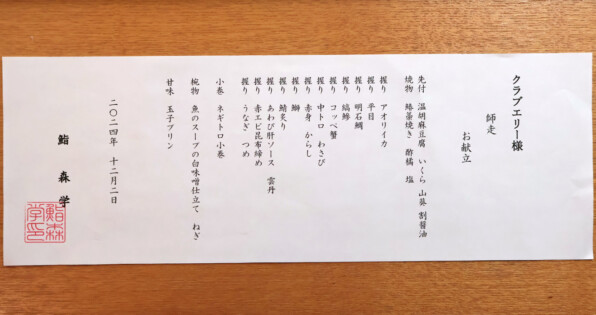 クラブエリー様
師走
お献立
先付 温胡麻豆腐 いくら 山葵 割醤油
焼物 鰆藁焼き 酢橘 塩
握り アオリイカ
握り 平目
握り 明石鯛
握り 縞鯵
握り コッペ蟹
握り 中トロ わさび
握り 赤身 からし
握り 鰤
握り 鯖炙り
握り あわび肝ソース 雲丹
握り 赤エビ昆布締め
握り うなぎ つめ
小巻 ネギトロ小巻
椀物 魚のスープの白味噌仕立て ねぎ
甘味 玉子プリン
二〇二四年 十二月二日
鮨 森 学
鮨森
学印